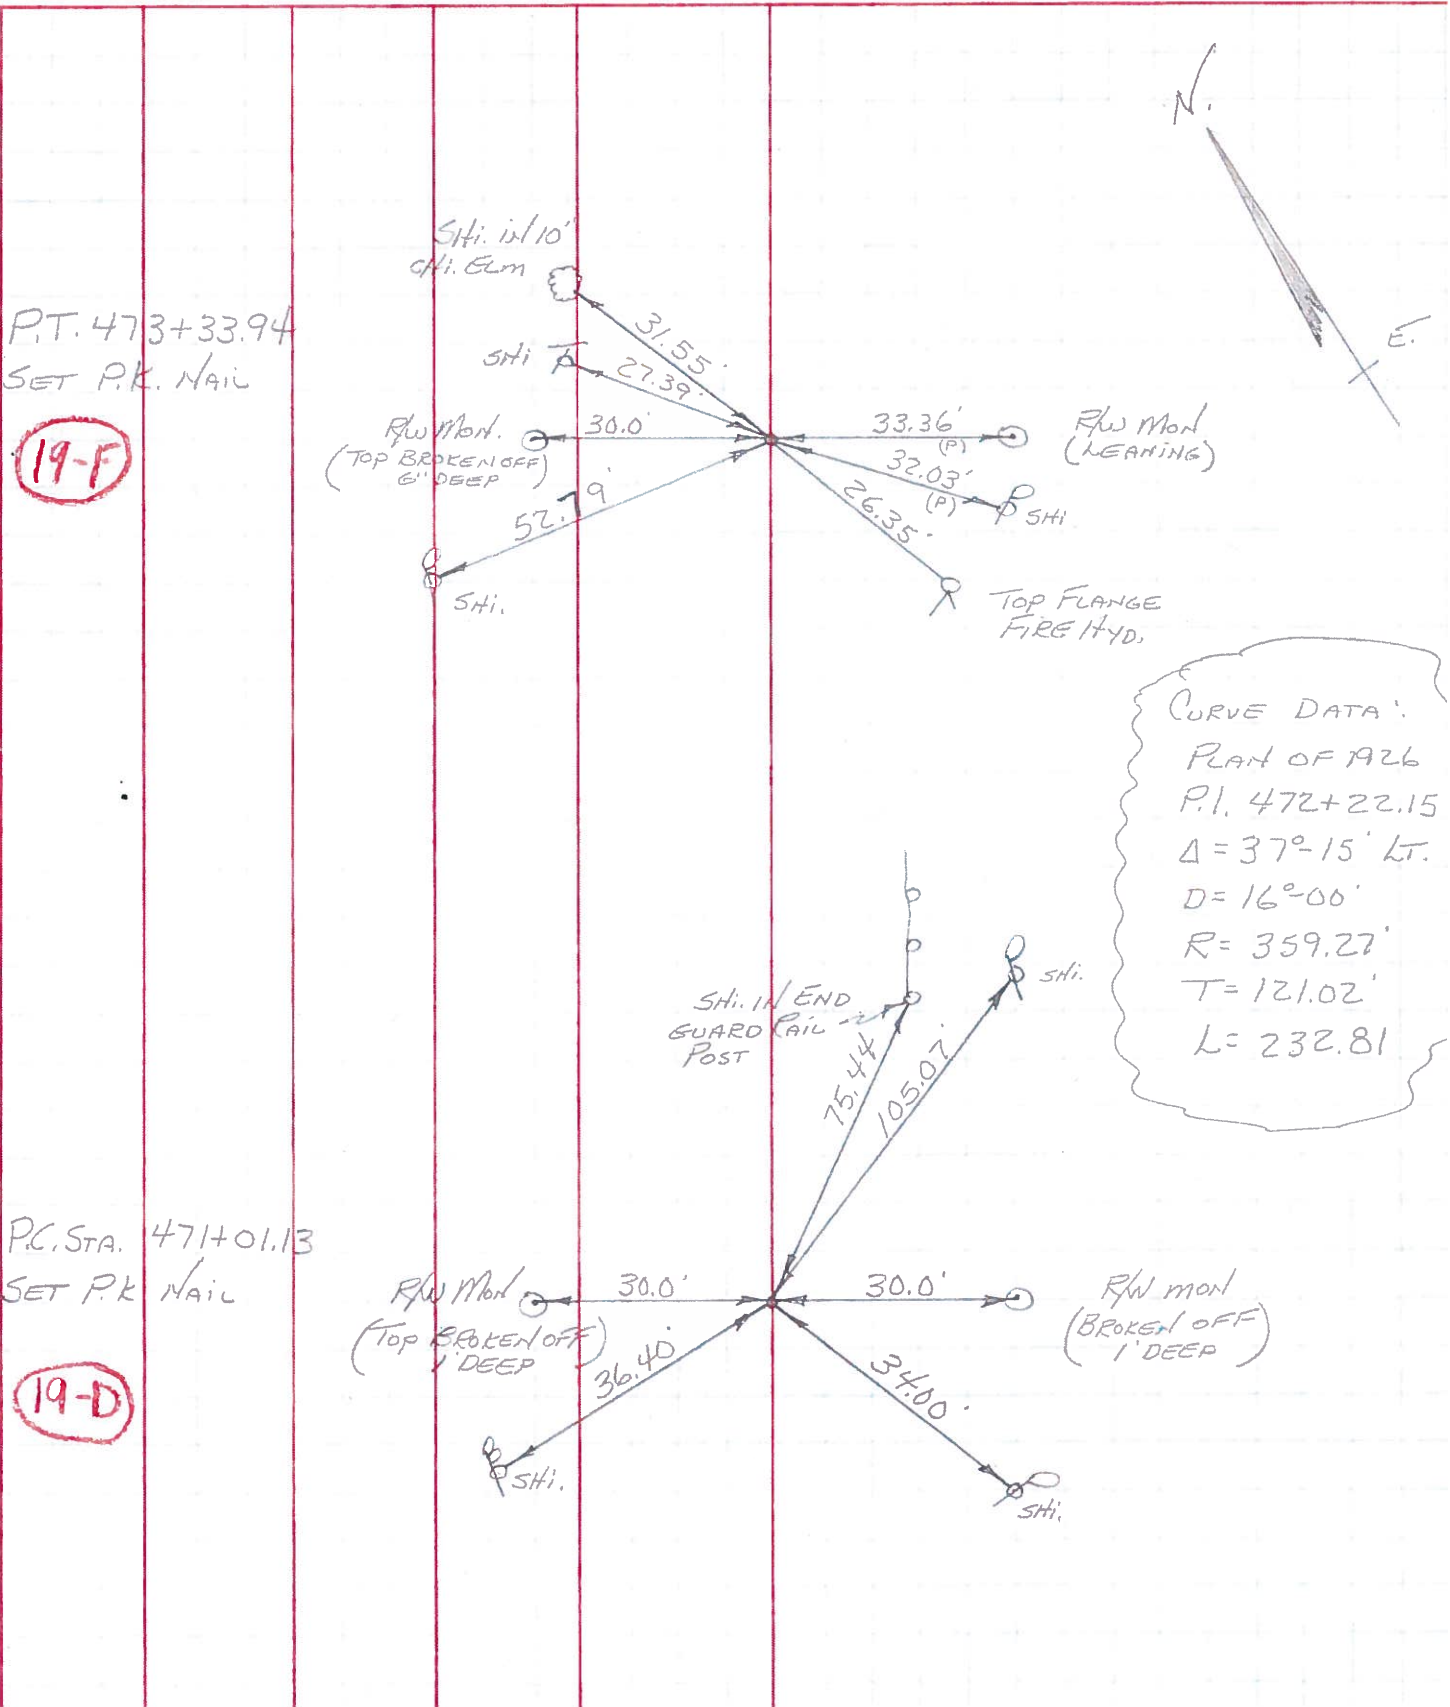 N.
E.
SHi. iN 10'
CHi. ELM
31.55'
P.T. 473+33.94
SET P.K. NAiL
SHi
27.39'
19-F
R/W MON.
(TOP BROKEN OFF)
6" DEEP
30.0'
33.36'
(P)
R/W MON
(LEANiNG)
32.03'
(P)
SHi
52.79'
26.35'
SHi.
TOP FLANGE
FiRE HYD.
CURVE DATA:
PLAN OF 1926
P.I. 472+22.15
Δ = 37°-15' LT.
D = 16°-00'
R = 359.27'
T = 121.02'
L = 232.81
SHi.
SHi. IN END
GUARD RAiL
POST
75.44'
105.07'
P.C. STA. 471+01.13
SET P.K NAiL
R/W MON
(TOP BROKEN OFF)
1' DEEP
30.0'
30.0'
R/W MON
(BROKEN OFF)
1' DEEP
19-D
36.40'
34.00'
SHi.
SHi.